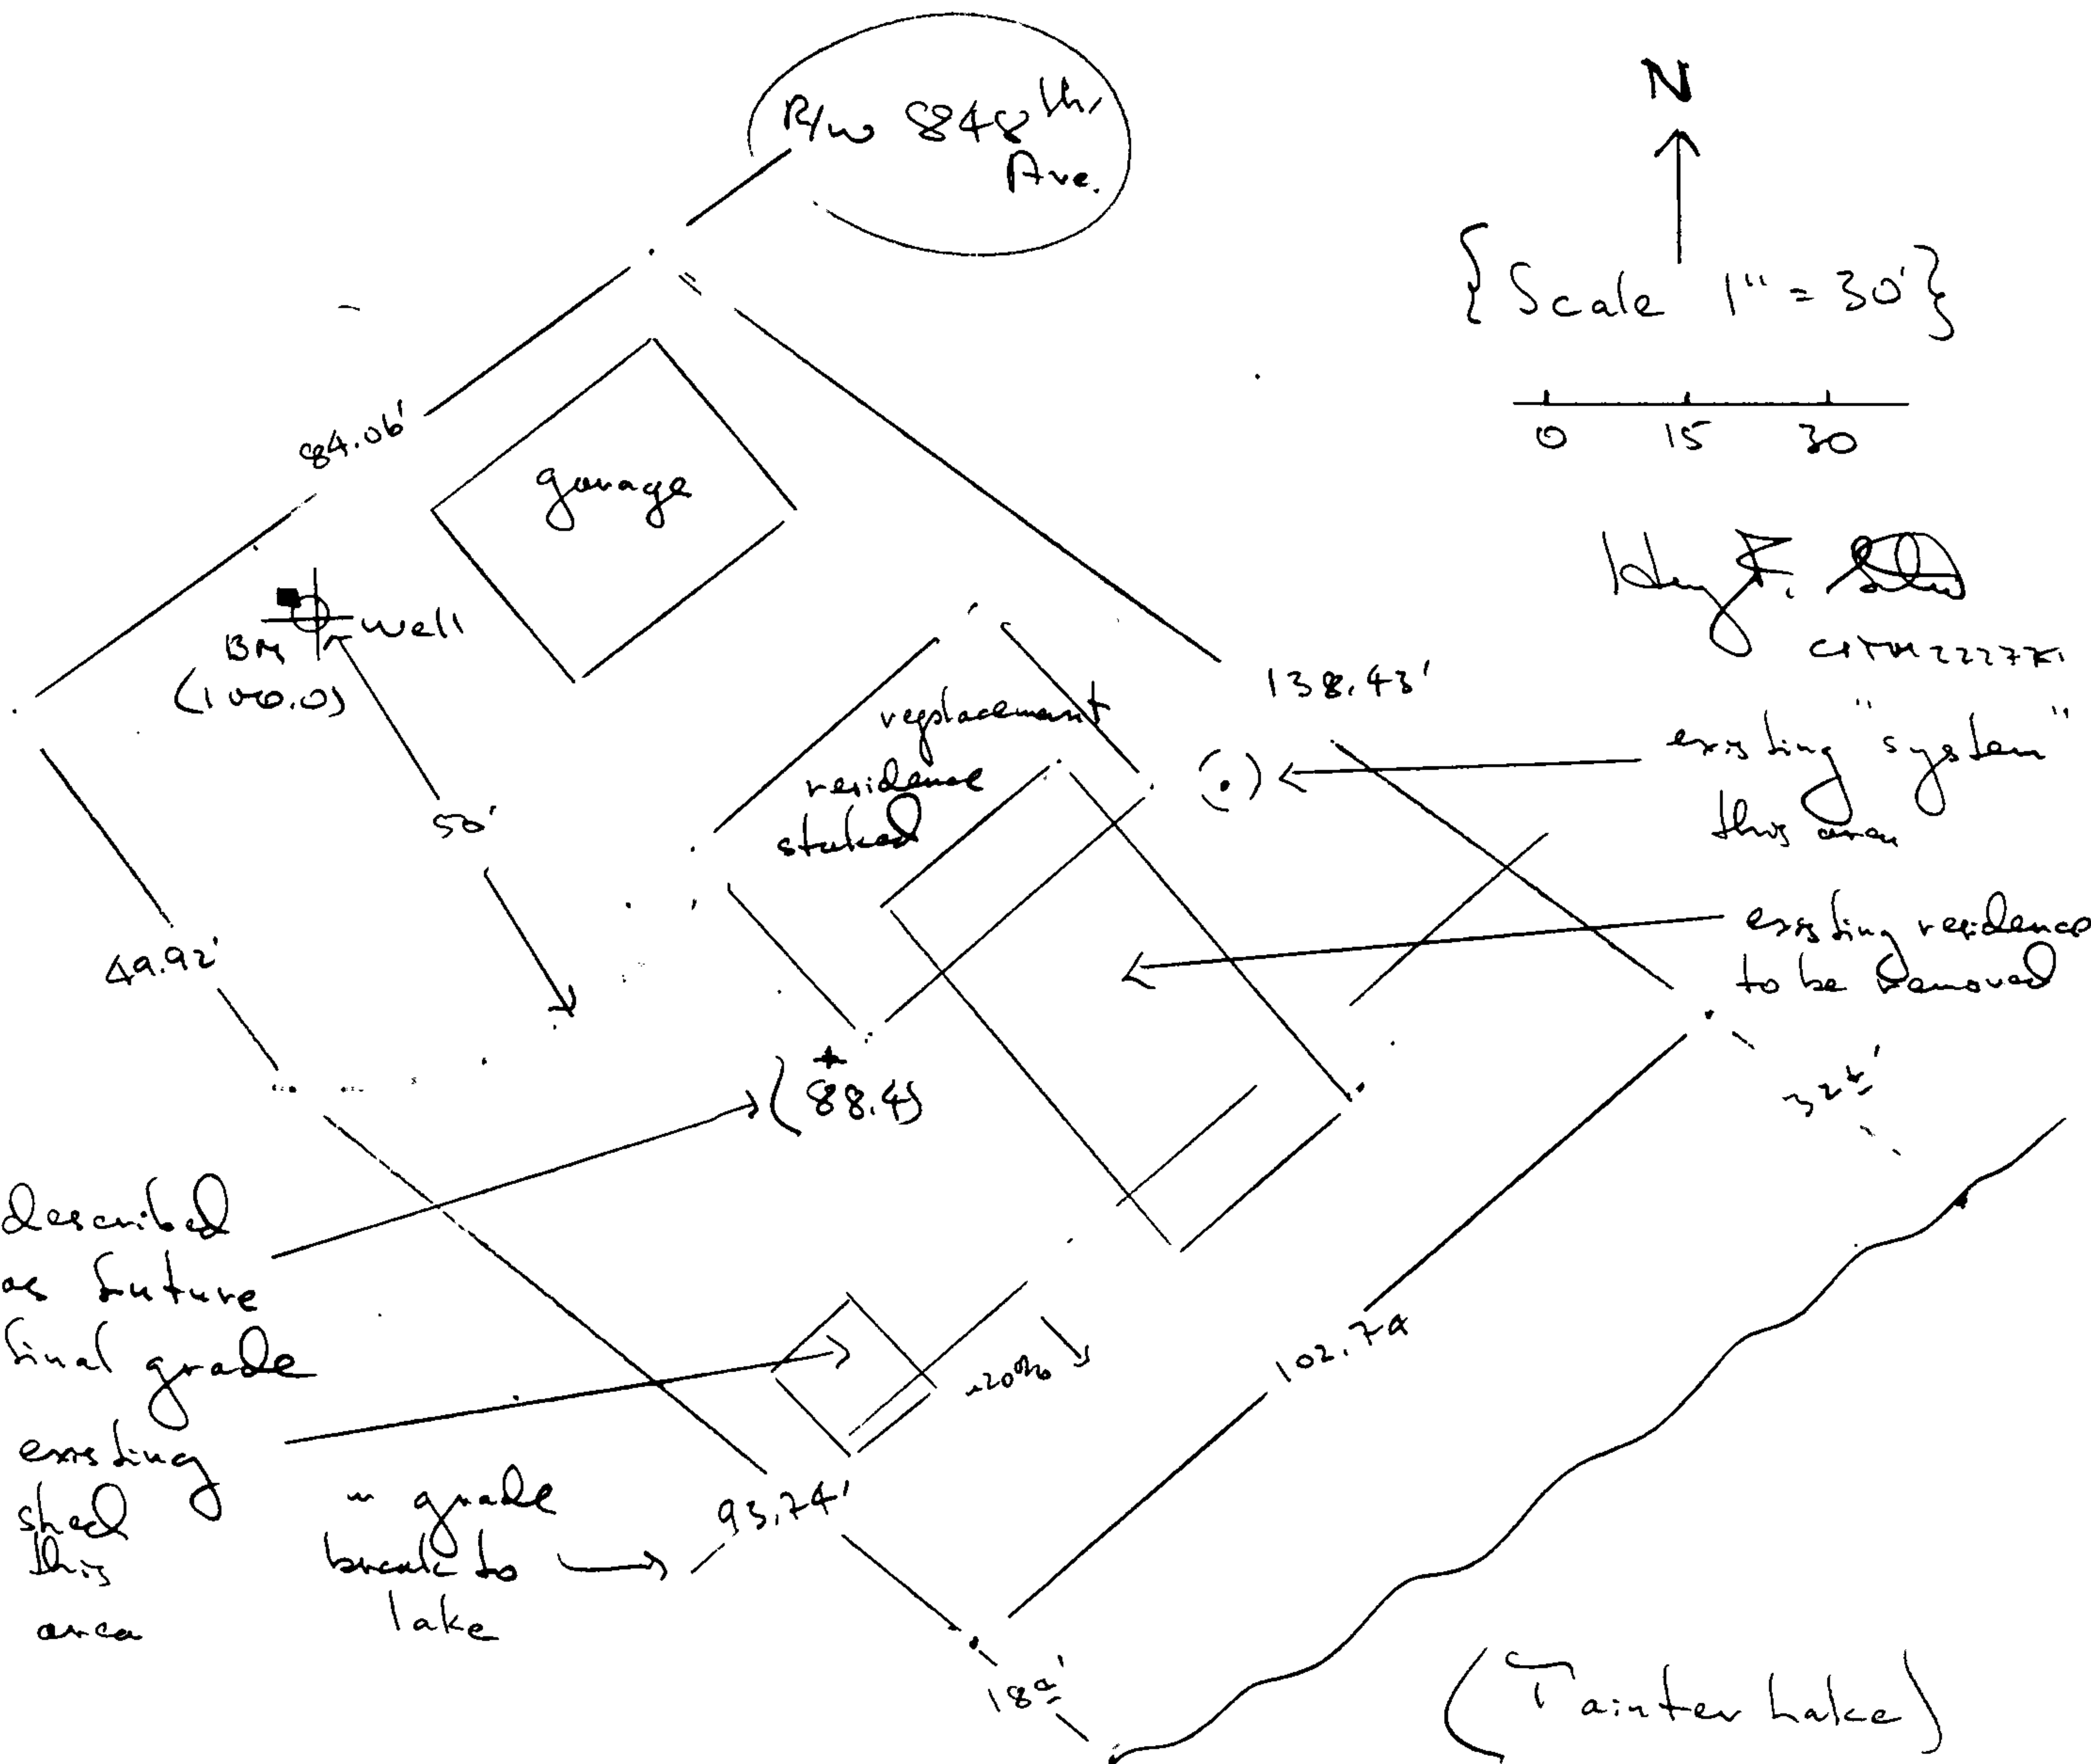 R/W 848th
Ave.
N
{Scale 1" = 30'}
0 15 30
84.06'
garage
Well
BM
(100.0)
replacement
residence
staked
138.43'
existing "system"
this area
50'
49.92'
existing residence
to be removed
(88.4)
32±'
described
as future
final grade
existing
shed
this
area
~20%
102.74
~ grade
break to
lake
93.74'
18±'
(Tainter Lake)